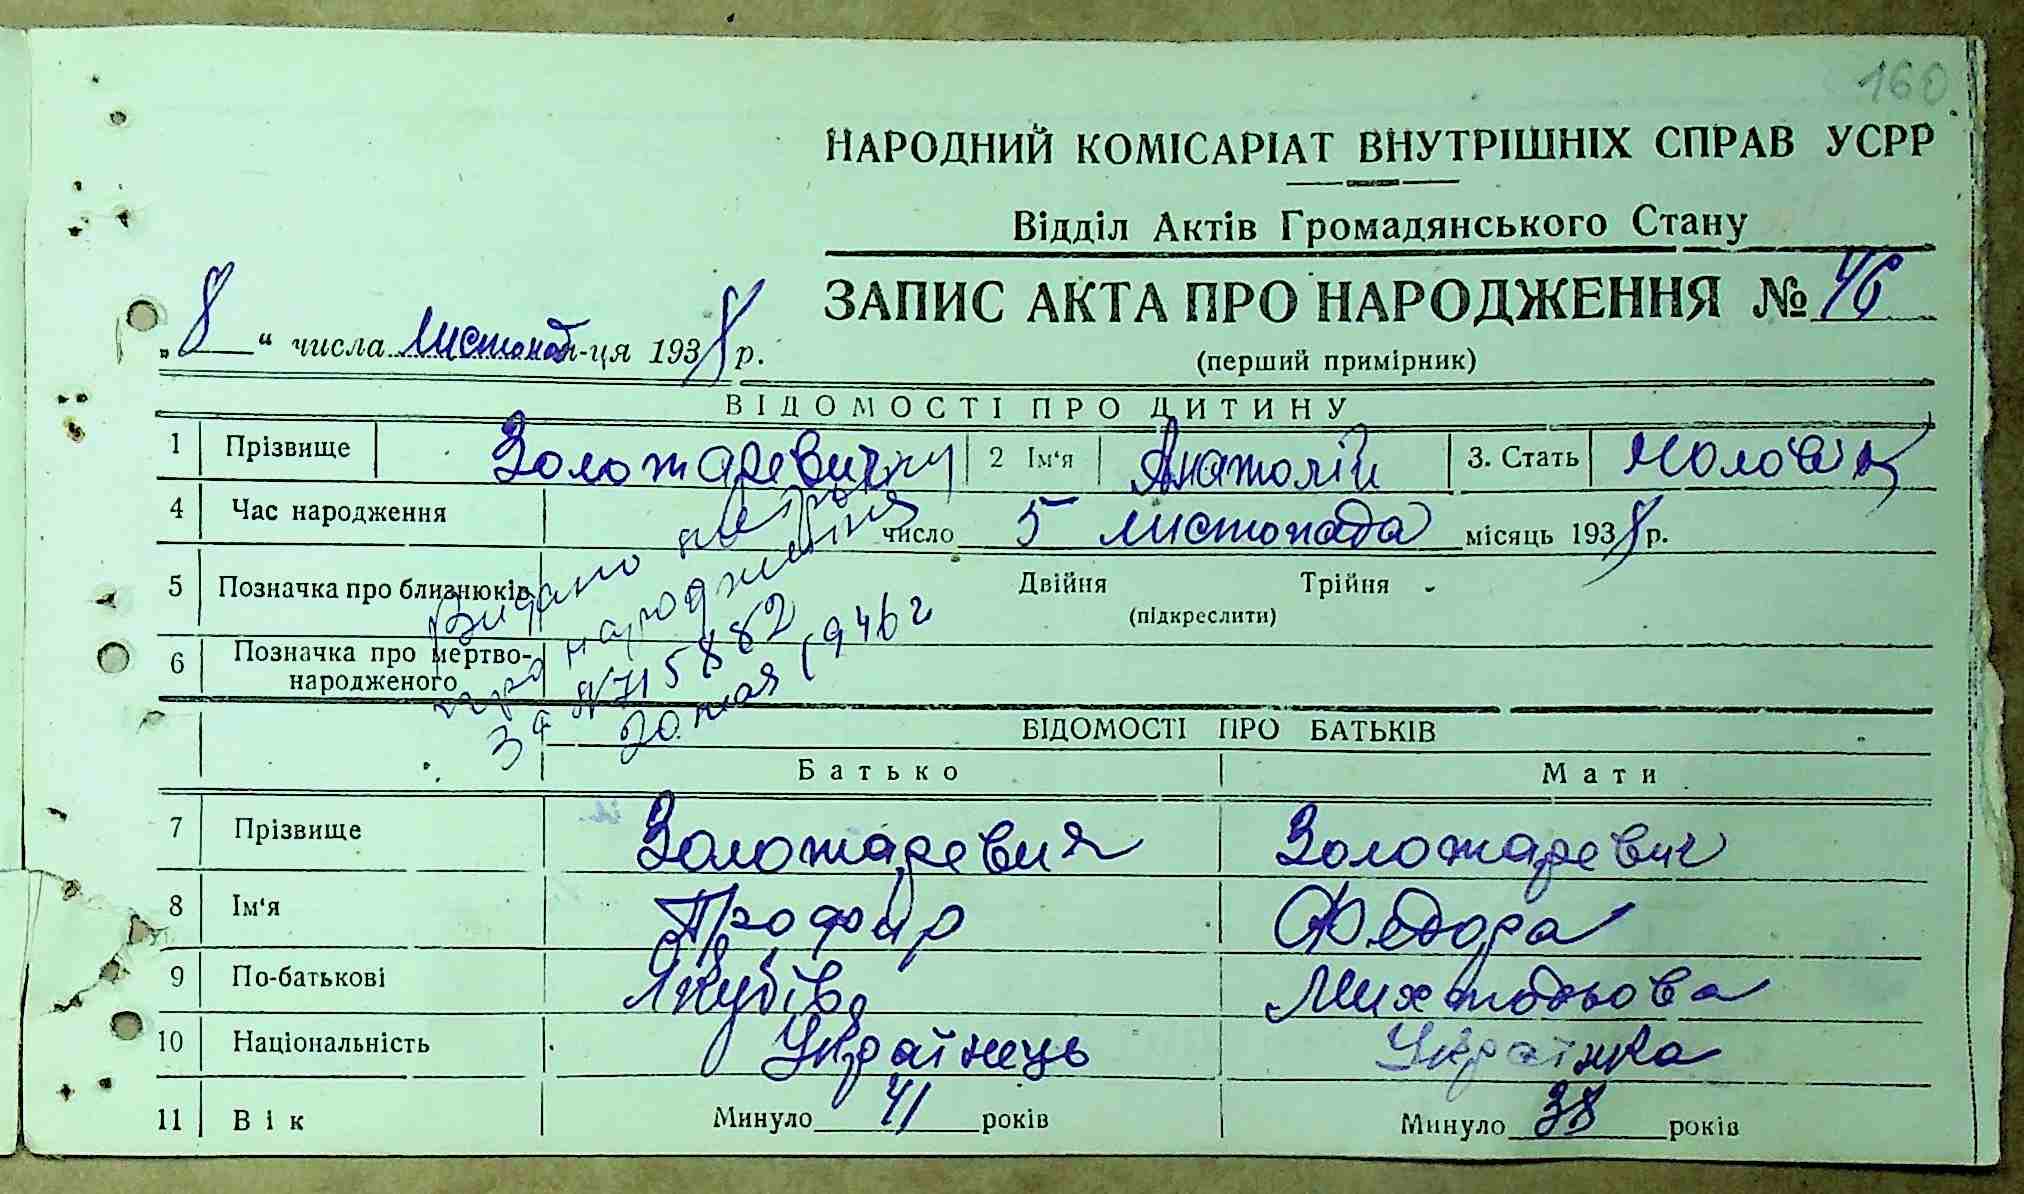 160
НАРОДНИЙ КОМІСАРІАТ ВНУТРІШНІХ СПРАВ УСРР
Відділ Актів Громадянського Стану
ЗАПИС АКТА ПРО НАРОДЖЕННЯ № 46
(перший примірник)
„8“ числа листопад м-ця 1938 р.
ВІДОМОСТІ ПРО ДИТИНУ
1 Прізвище Золотаревич 2 Ім'я Анатолій 3. Стать Чоловік
4 Час народження число 5 листопада місяць 1938 р.
5 Позначка про близнюків Двійня Трійня
(підкреслити)
6 Позначка про мертвонародженого
Видано
про народження
за № 715882
20 мая 1946 г
ВІДОМОСТІ ПРО БАТЬКІВ
Батько Мати
7 Прізвище Золотаревич Золотаревич
8 Ім'я Профир Федора
9 По-батькові Якубів
10 Національність Українець Українка
11 Вік Минуло 41 років Минуло 38 років